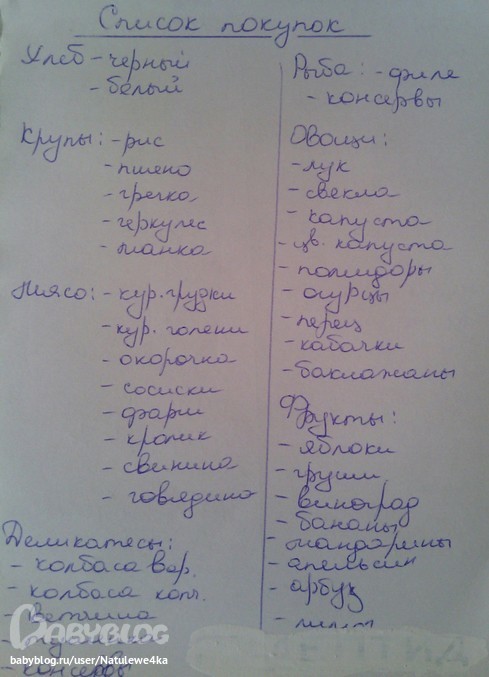 Список покупок
Хлеб - черный
- белый
Крупы: - рис
- пшено
- гречка
- геркулес
- манка
Мясо: - кур. грудки
- кур. голени
- окорочка
- сосиски
- фарш
- кролик
- свинина
- говядина
Деликатесы:
- колбаса вар.
- колбаса копч.
- ветчина
- консервы
Рыба: - филе
- консервы
Овощи:
- лук
- свекла
- капуста
- цв. капуста
- помидоры
- огурцы
- перец
- кабачки
- баклажаны
Фрукты:
- яблоки
- груши
- виноград
- бананы
- мандарины
- апельсин
- арбуз
BABYBLOG
babyblog.ru/user/Natulewe4ka